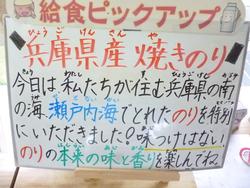 給食ピックアップ
ひょうごけんさんや
兵庫県産焼きのり
今日は私たちが住む兵庫県の南
の海、瀬戸内海でとれたのりを特別
にいただきました。味つけはない
のりの本来の味と香りを楽しんでね。